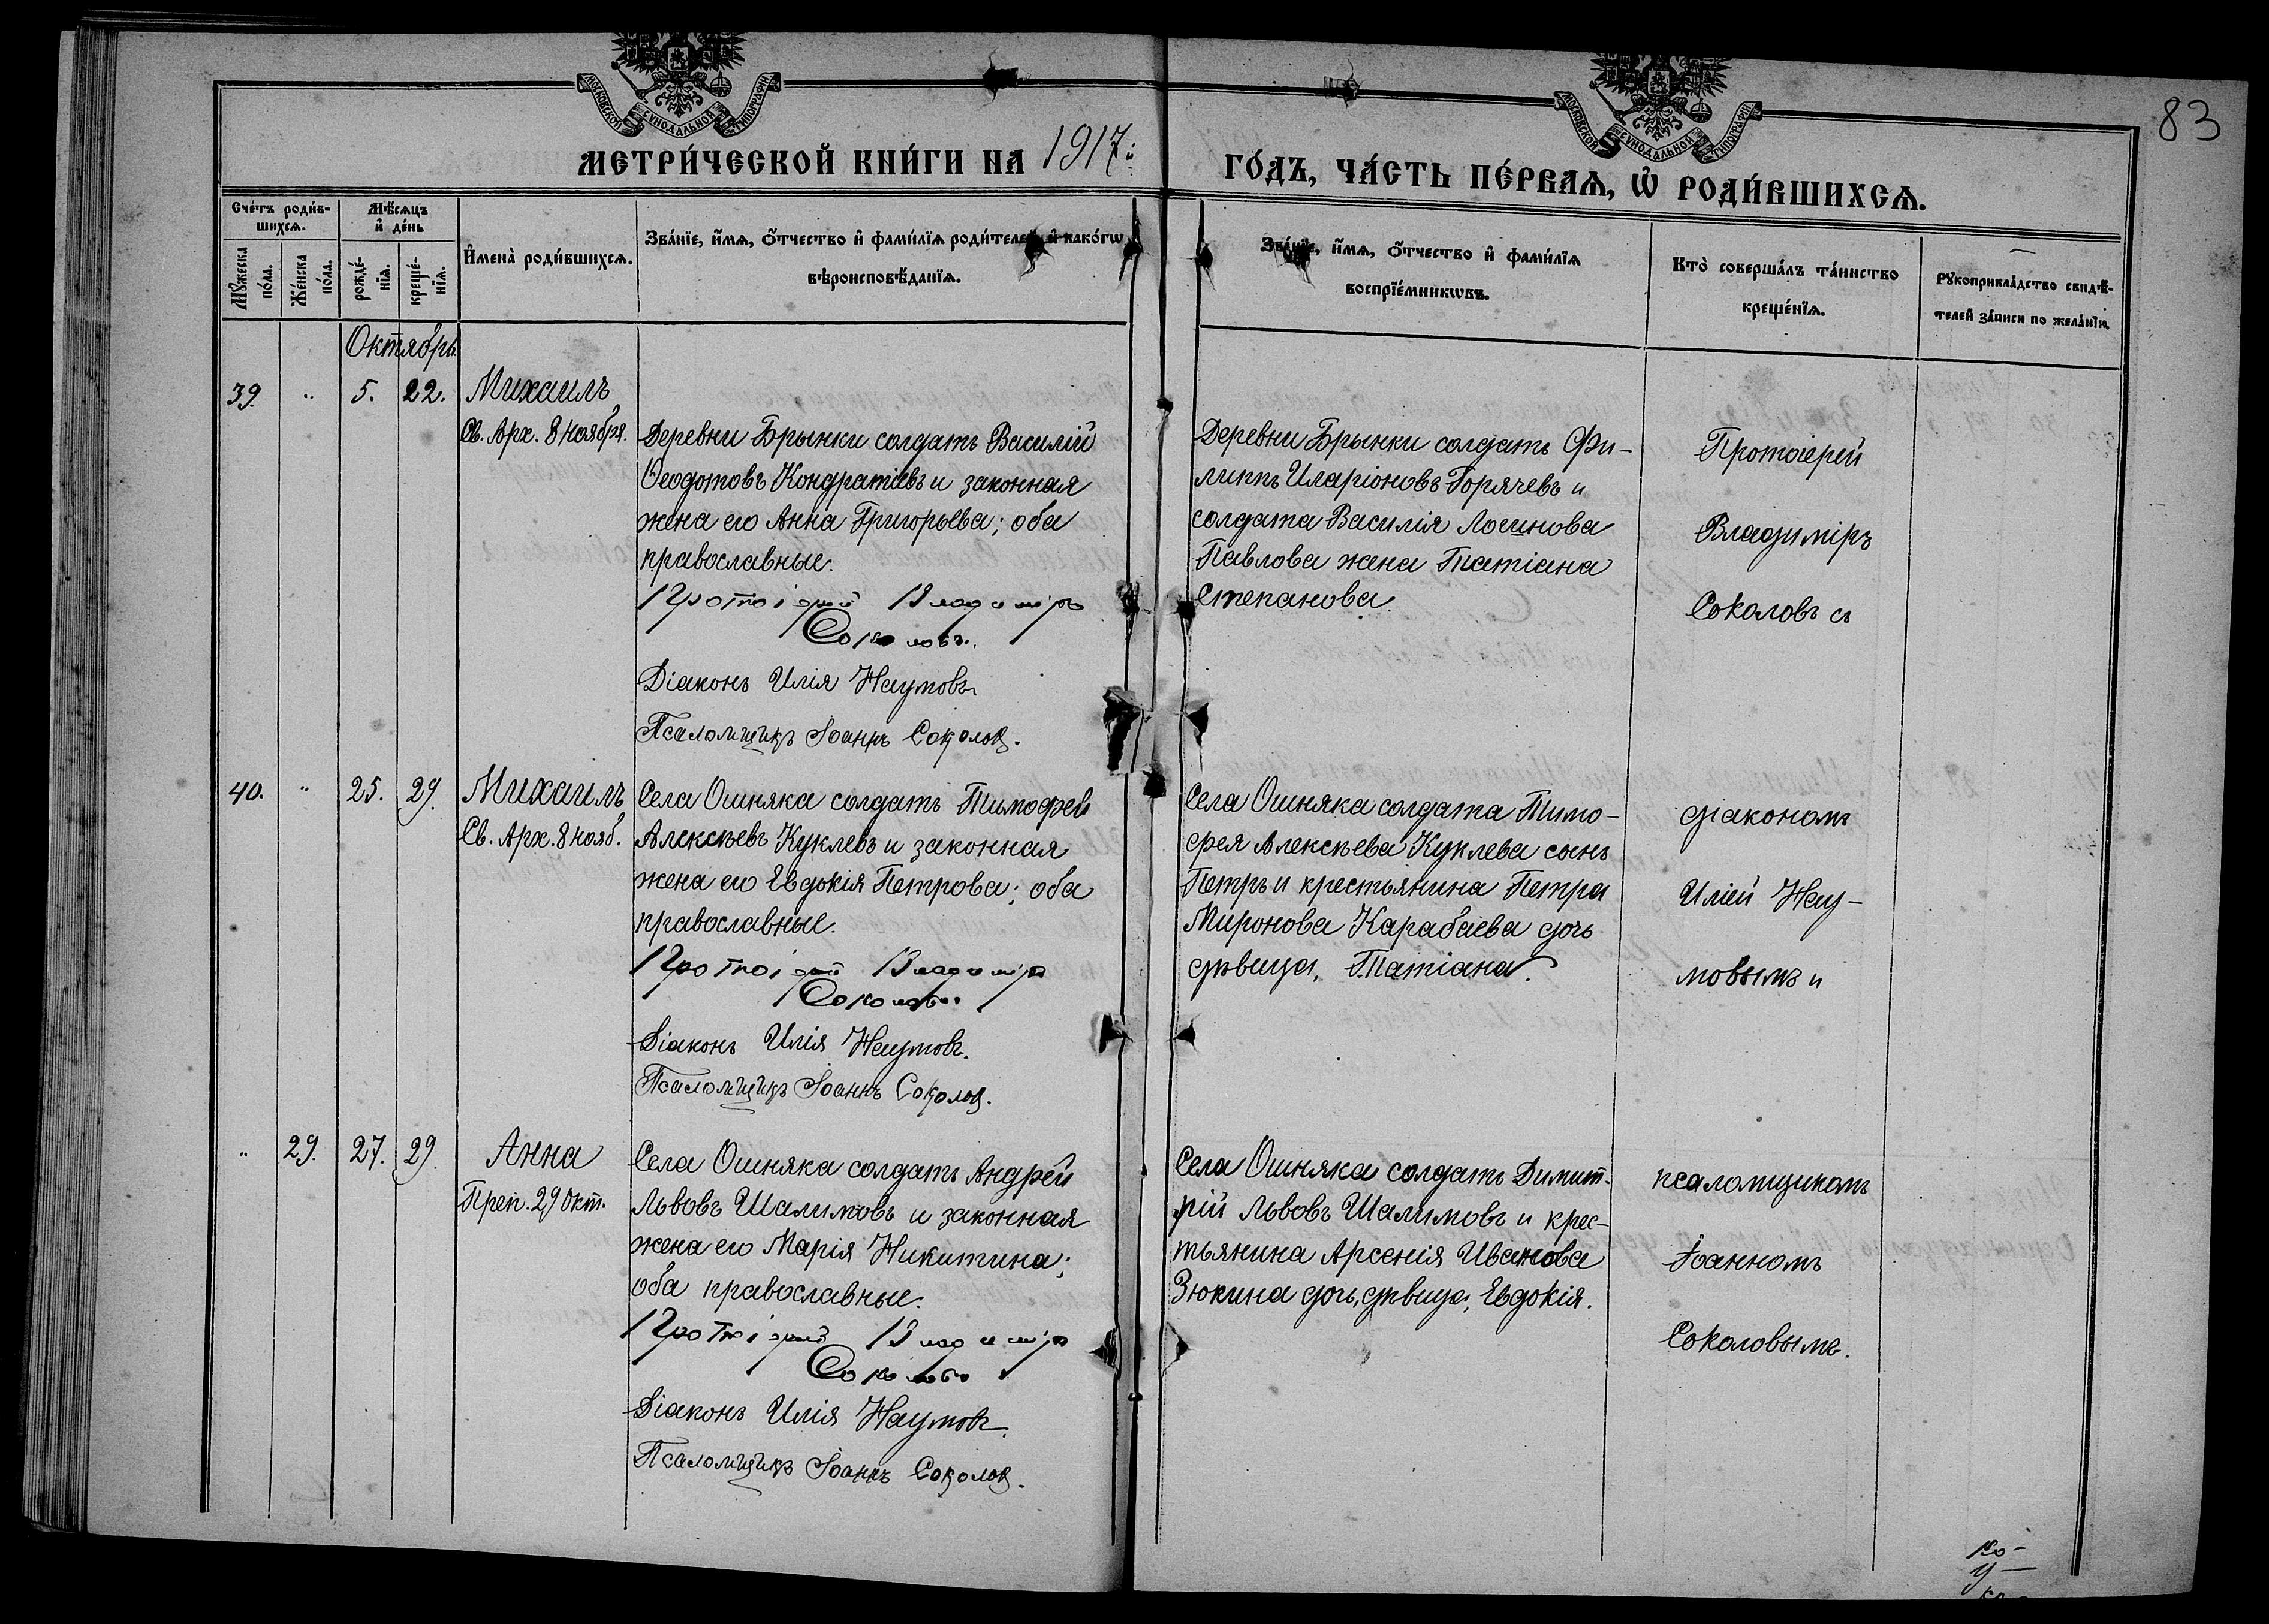 МОСКОВСКОЙ СѴНОДАЛЬНОЙ ТИПОГРАФІИ
МОСКОВСКОЙ СѴНОДАЛЬНОЙ ТИПОГРАФІИ
83
МЕТРИ́ЧЕСКОЙ КНИ́ГИ НА 1917й
ГО́ДЪ, ЧА́СТЬ ПЕ́РВАѦ, Ѡ҆ РОДИ́ВШИХСѦ.
Сче́тъ роди́в-
шихсѧ.
Мꙋ́жеска
по́ла.
Же́нска
по́ла.
Мѣ́сѧцъ
и҆ де́нь
рожде́-
нїѧ.
креще́-
нїѧ.
И҆мена̀ роди́вшихсѧ.
Зва́нїе, и҆́мѧ, ѻ҆́тчество и҆ фами́лїѧ роди́телей, и҆ како́гѡ
вѣроисповѣ́данїѧ.
Зва́нїе, и҆́мѧ, ѻ҆́тчество и҆ фами́лїѧ
воспрїе́мникѡвъ.
Кто̀ соверша́лъ та́инство
креще́нїѧ.
Рꙋкоприкла́дство свидѣ́-
телей за́писи по жела́нїю.
Октябрь
39. " 5. 22. Михаилъ
Св. Арх. 8 ноября.
Деревни Брынки солдатъ Василій
Ѳеодотовъ Кондратіевъ и законная
жена его Анна Григорьева; оба
православные.
Протоіерей Владиміръ
Соколовъ.
Діаконъ Илія Наумовъ.
Псаломщикъ Іоаннъ Соколов.
Деревни Брынки солдатъ Фи-
липпъ Иларіоновъ Горячевъ и
солдата Василія Логинова
Павлова жена Татіана
Степанова.
Протоіерей
Владиміръ
Соколовъ съ
40. " 25. 29. Михаилъ
Св. Арх. 8 нояб.
Села Ошняка солдатъ Тимофей
Алексѣевъ Куклевъ и законная
жена его Евдокія Петрова; оба
православные.
Протоіерей Владиміръ
Соколовъ.
Діаконъ Илія Наумовъ.
Псаломщикъ Іоаннъ Соколов.
Села Ошняка солдата Тимо-
фея Алексѣева Куклева сынъ
Петръ и крестьянина Петра
Миронова Карабаева дочь
дѣвица, Татіана.
діакономъ
Иліей Нау-
мовымъ и
" 29. 27. 29. Анна
Преп. 29 Окт.
Села Ошняка солдатъ Андрей
Львовъ Шалимовъ и законная
жена его Марія Никитина;
оба православные.
Протоіерей Владиміръ
Соколовъ
Діаконъ Илія Наумовъ.
Псаломщикъ Іоаннъ Соколов.
Села Ошняка солдатъ Димит-
рій Львовъ Шалимовъ и крес-
тьянина Арсенія Иванова
Зюкина дочь, дѣвица, Евдокія.
псаломщикомъ
Іоанномъ
Соколовымъ.